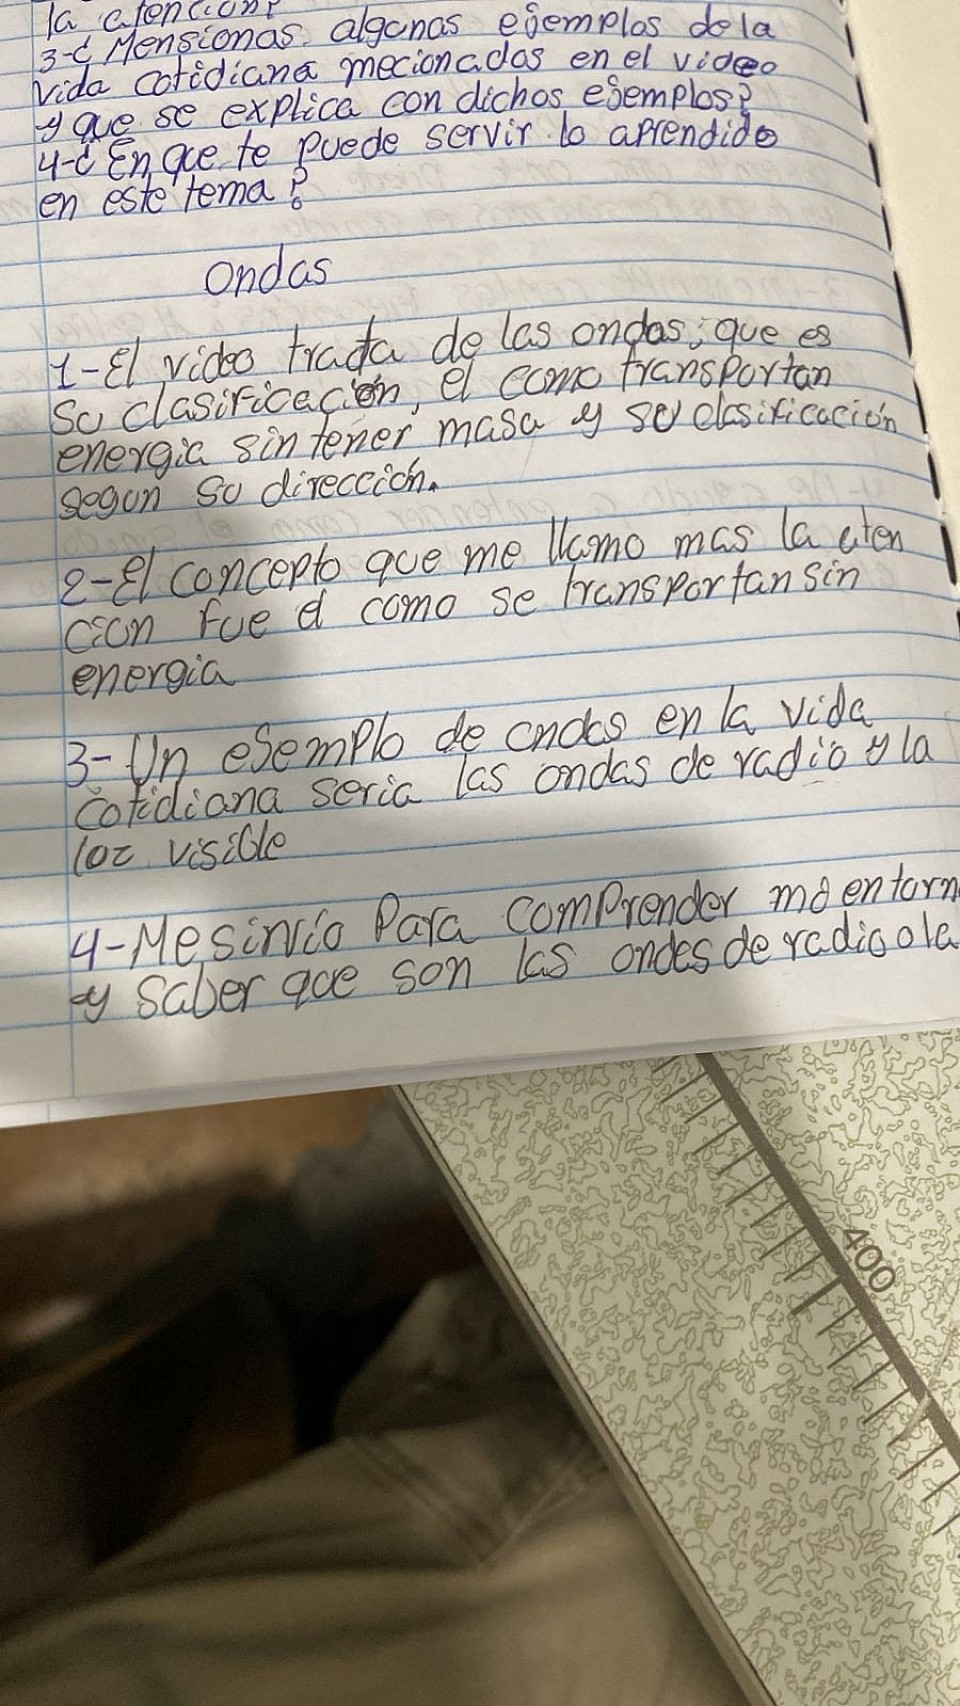 la atencion?
3-¿ Mensionas algunas ejemplos de la
vida cotidiana mecionados en el video
y que se explica con dichos ejemplos?
4-¿ En que te puede servir lo aprendido
en este tema?
ondas
1-El video trata de las ondas; que es
su clasificación, el como transportan
energia sin tener masa y su clasificación
segun su dirección.
2-El concepto que me llamo mas la aten
cion fue el como se transportan sin
energia
3-Un ejemplo de ondas en la vida
cotidiana seria las ondas de radio y la
luz visible
4-Me sirvio Para comprender mi entorn
y saber que son las ondas de radio o la
400